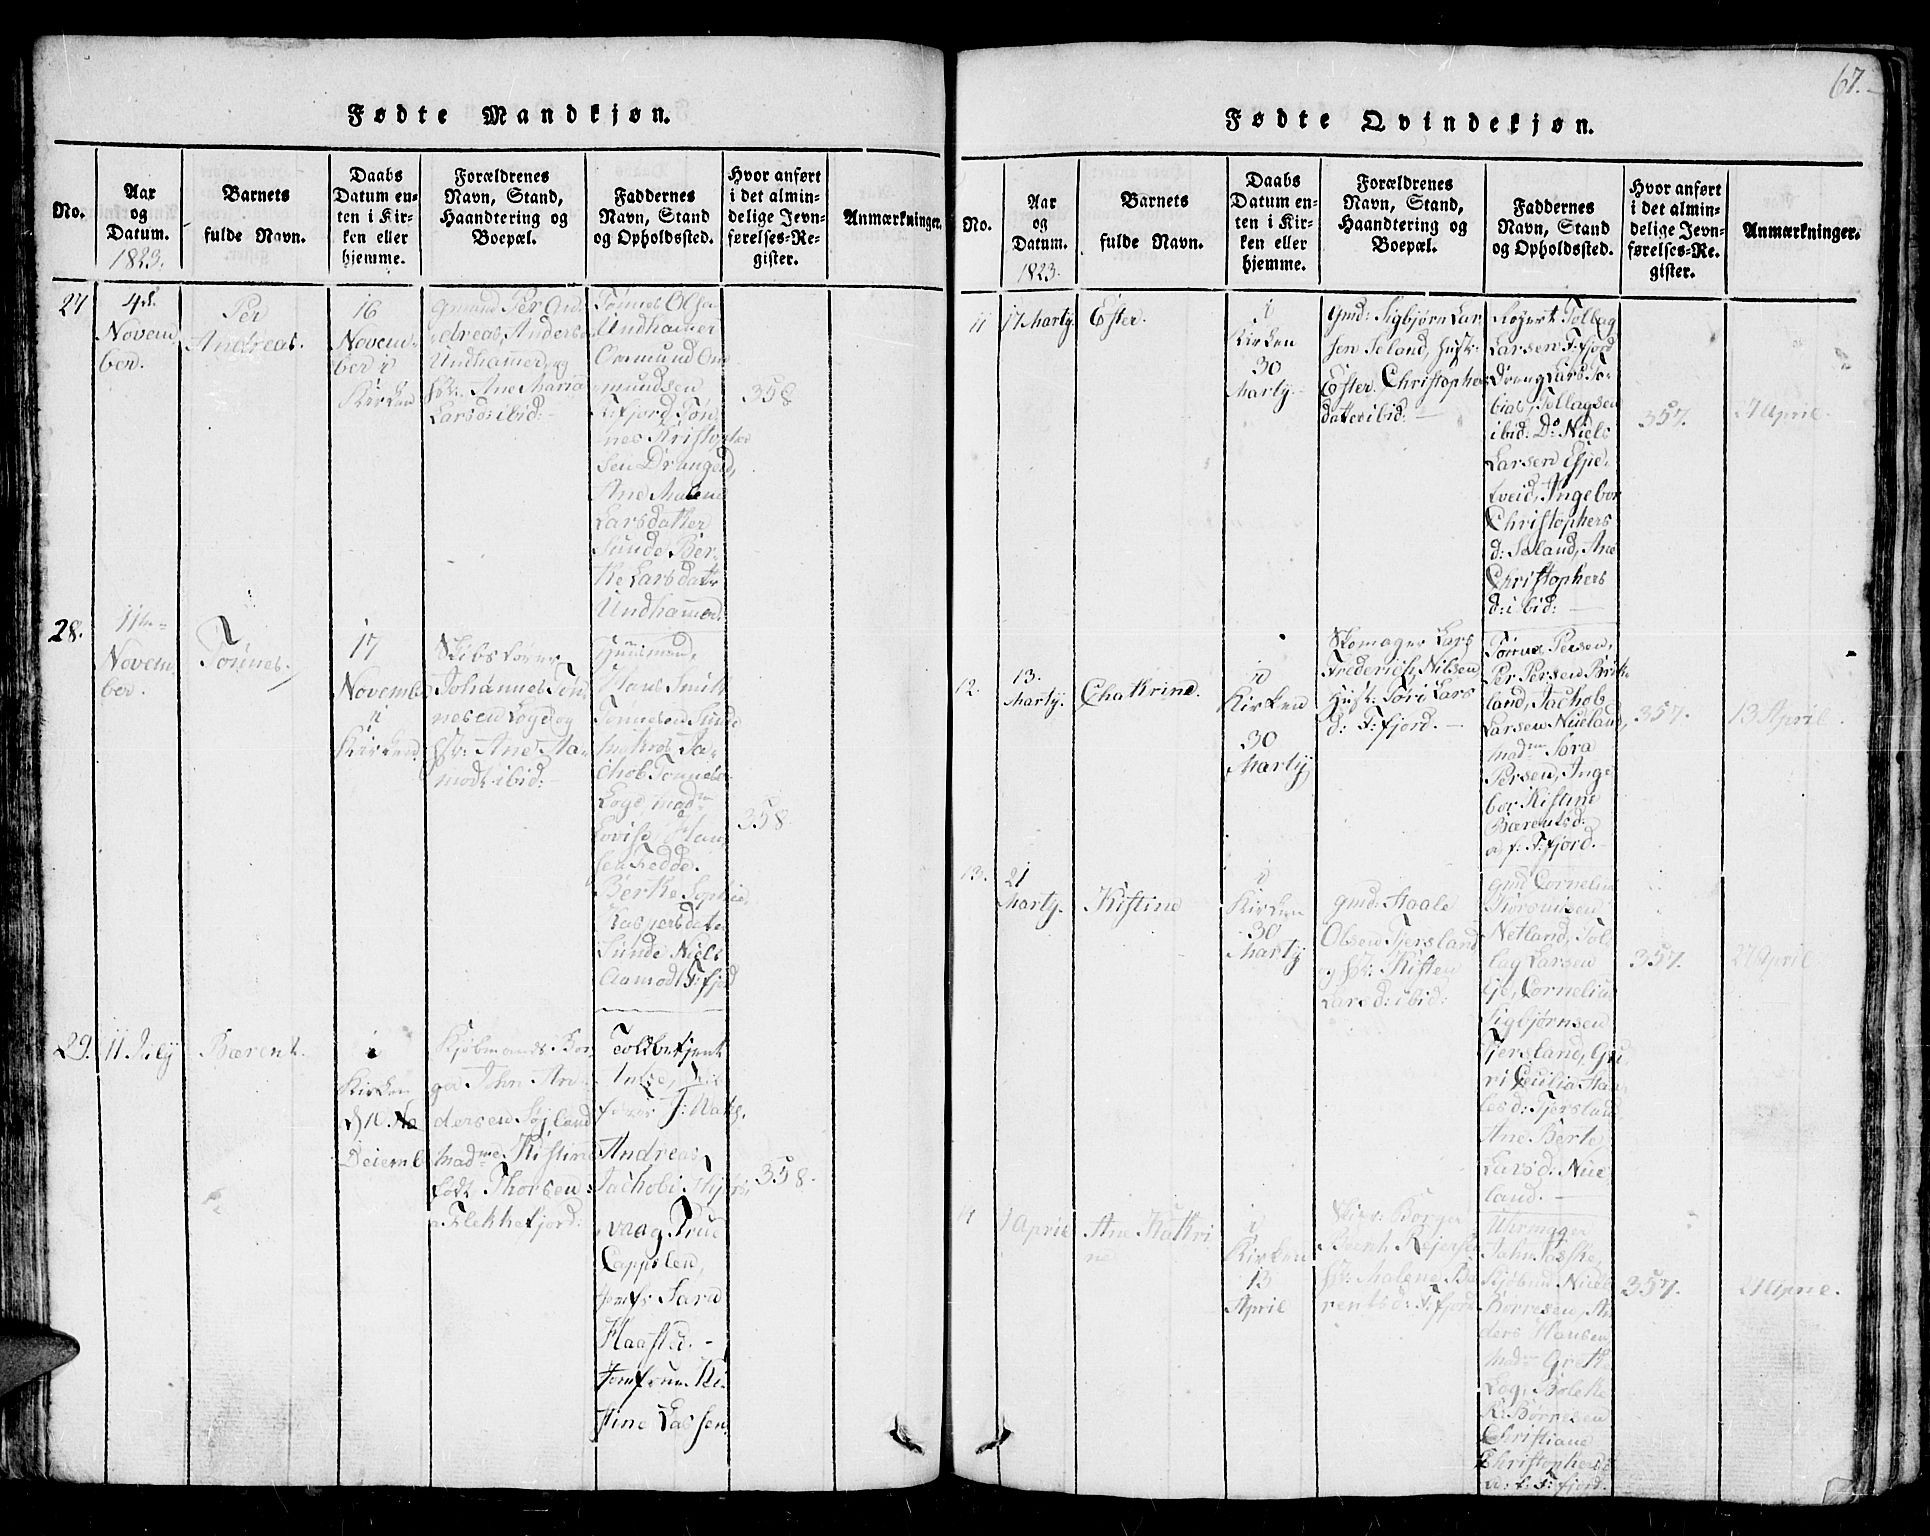 67.
Fødte Mandkjøn.
No.
Aar
og
Datum.
1823.
Barnets
fulde Navn.
Daabs
Datum en-
ten i Kir-
ken eller
hjemme.
Forældrenes
Navn, Stand,
Haandtering og
Boepæl.
Faddernes
Navn, Stand
og Opholdssted.
Hvor anført
i det almin-
delige Jevn-
førelses-Re-
gister.
Anmærkninger.
27
4d.
Novem
ber.
Per
Andreas.
16
Novem-
ber i
Kirken
Gmand Per An-
dreas Anders
Undhammer, og
Hst: Ane Maria
Larsd: ibid:
Tønnes Olsen
Undhammer
Ommund Om
mundsen
F:fjord Tøn
nes Kristophe
sen Drangeid,
Ane Malene
Larsdatter
Sunde Ber-
the Larsdatt
Undhammer
358
28.
11te
Novem
ber.
Tønnes
17
Novemb
i
Kirken
Skibsfører
Johannes Tøn
nesen Loge og
Hst: Ane Aa-
modt ibid:
Huusmand,
Hans Smith
Tønnesen Sunde
Ja-
chob Tønnes
Loge, Madm
Lovise Han
sen Fedde.
Berthe Sophie
Kaspersdatter
Sunde Niels
Aamodt F:fjd
358
29.
11 July
Bærent.
i
Kirken
d 10 No
Desemb
Kjøbmand Bor
ger John An-
dersen Søyland
Madme Kistine
født Thorsen
a Flekkefjord:
Toldbetjent
J: Wats.
Andreas
Jachobs. Sti
vaag, True
Cappelen,
Jomfr Sara
Haasted. -
Jomfrue Ki-
stine Lassen
358.
Fødte Qvindekjøn.
No.
Aar
og
Datum.
1823.
Barnets
fulde Navn.
Daabs
Datum en-
ten i Kir-
ken eller
hjemme.
Forældrenes
Navn, Stand,
Haandtering og
Boepæl.
Faddernes
Navn, Stand
og Opholdssted.
Hvor anført
i det almin-
delige Jevn-
førelses-Re-
gister.
Anmærkninger.
11
17 Marty.
Ester.
i
Kirken
30
Marty
Gmd: Sigbjørn Lar
sen Seland, Hust:
Ester Christophers
datter ibid: —
Tollag
Larsen F:fjord
Dreng Lars To-
bias Tollagsen
ibid: Do Niels
Larsen Espe-
tveid, Ingebor
Christophers
d: Seland, Ane
Christophers
d: ibid: —
357.
27 April.
12.
13.
Marty.
Chatrine.
i
Kirken
30
Marty
Skomager Lars
Frederich Nilsen,
Hust: Tori Lars
d: F:fjord. —
Tønnes Persen,
Per Persen Birke
land, Jachob
Larsen Nueland,
Madm Sara
Persen, Inge
bor Kistine
Bærentsd:
a f: F:fjord.
357.
13 April.
13.
21
Marty.
Kistine
i
Kirken
30
Marty
Gmd: Haale
Olsen Fjersland
og Hst: Kisten
Larsd: ibid:
Gmd Cornelius
Netland, Tol
lag Larsen
Cornelius
Sigbjørnsen
Fjersland, Gu
ri Cecilia Haa
lesd: Fjersland
Ane Berte
Larsd: Nue
land. —
357.
27 April
14
1 April
Ane Katri
ne
i
Kirken
13
April
Borger
Bernt Rejersen
Hst: Malene Bæ
rentsd: F:fjord
Uhrmager
John
Kjøbmd Niels
Børresen, An
ders Hansen,
Madm Greth
Log, Bolette
R: Børresen
Christiane
Christophersd
a: f: F:fjord.
357.
27 April.